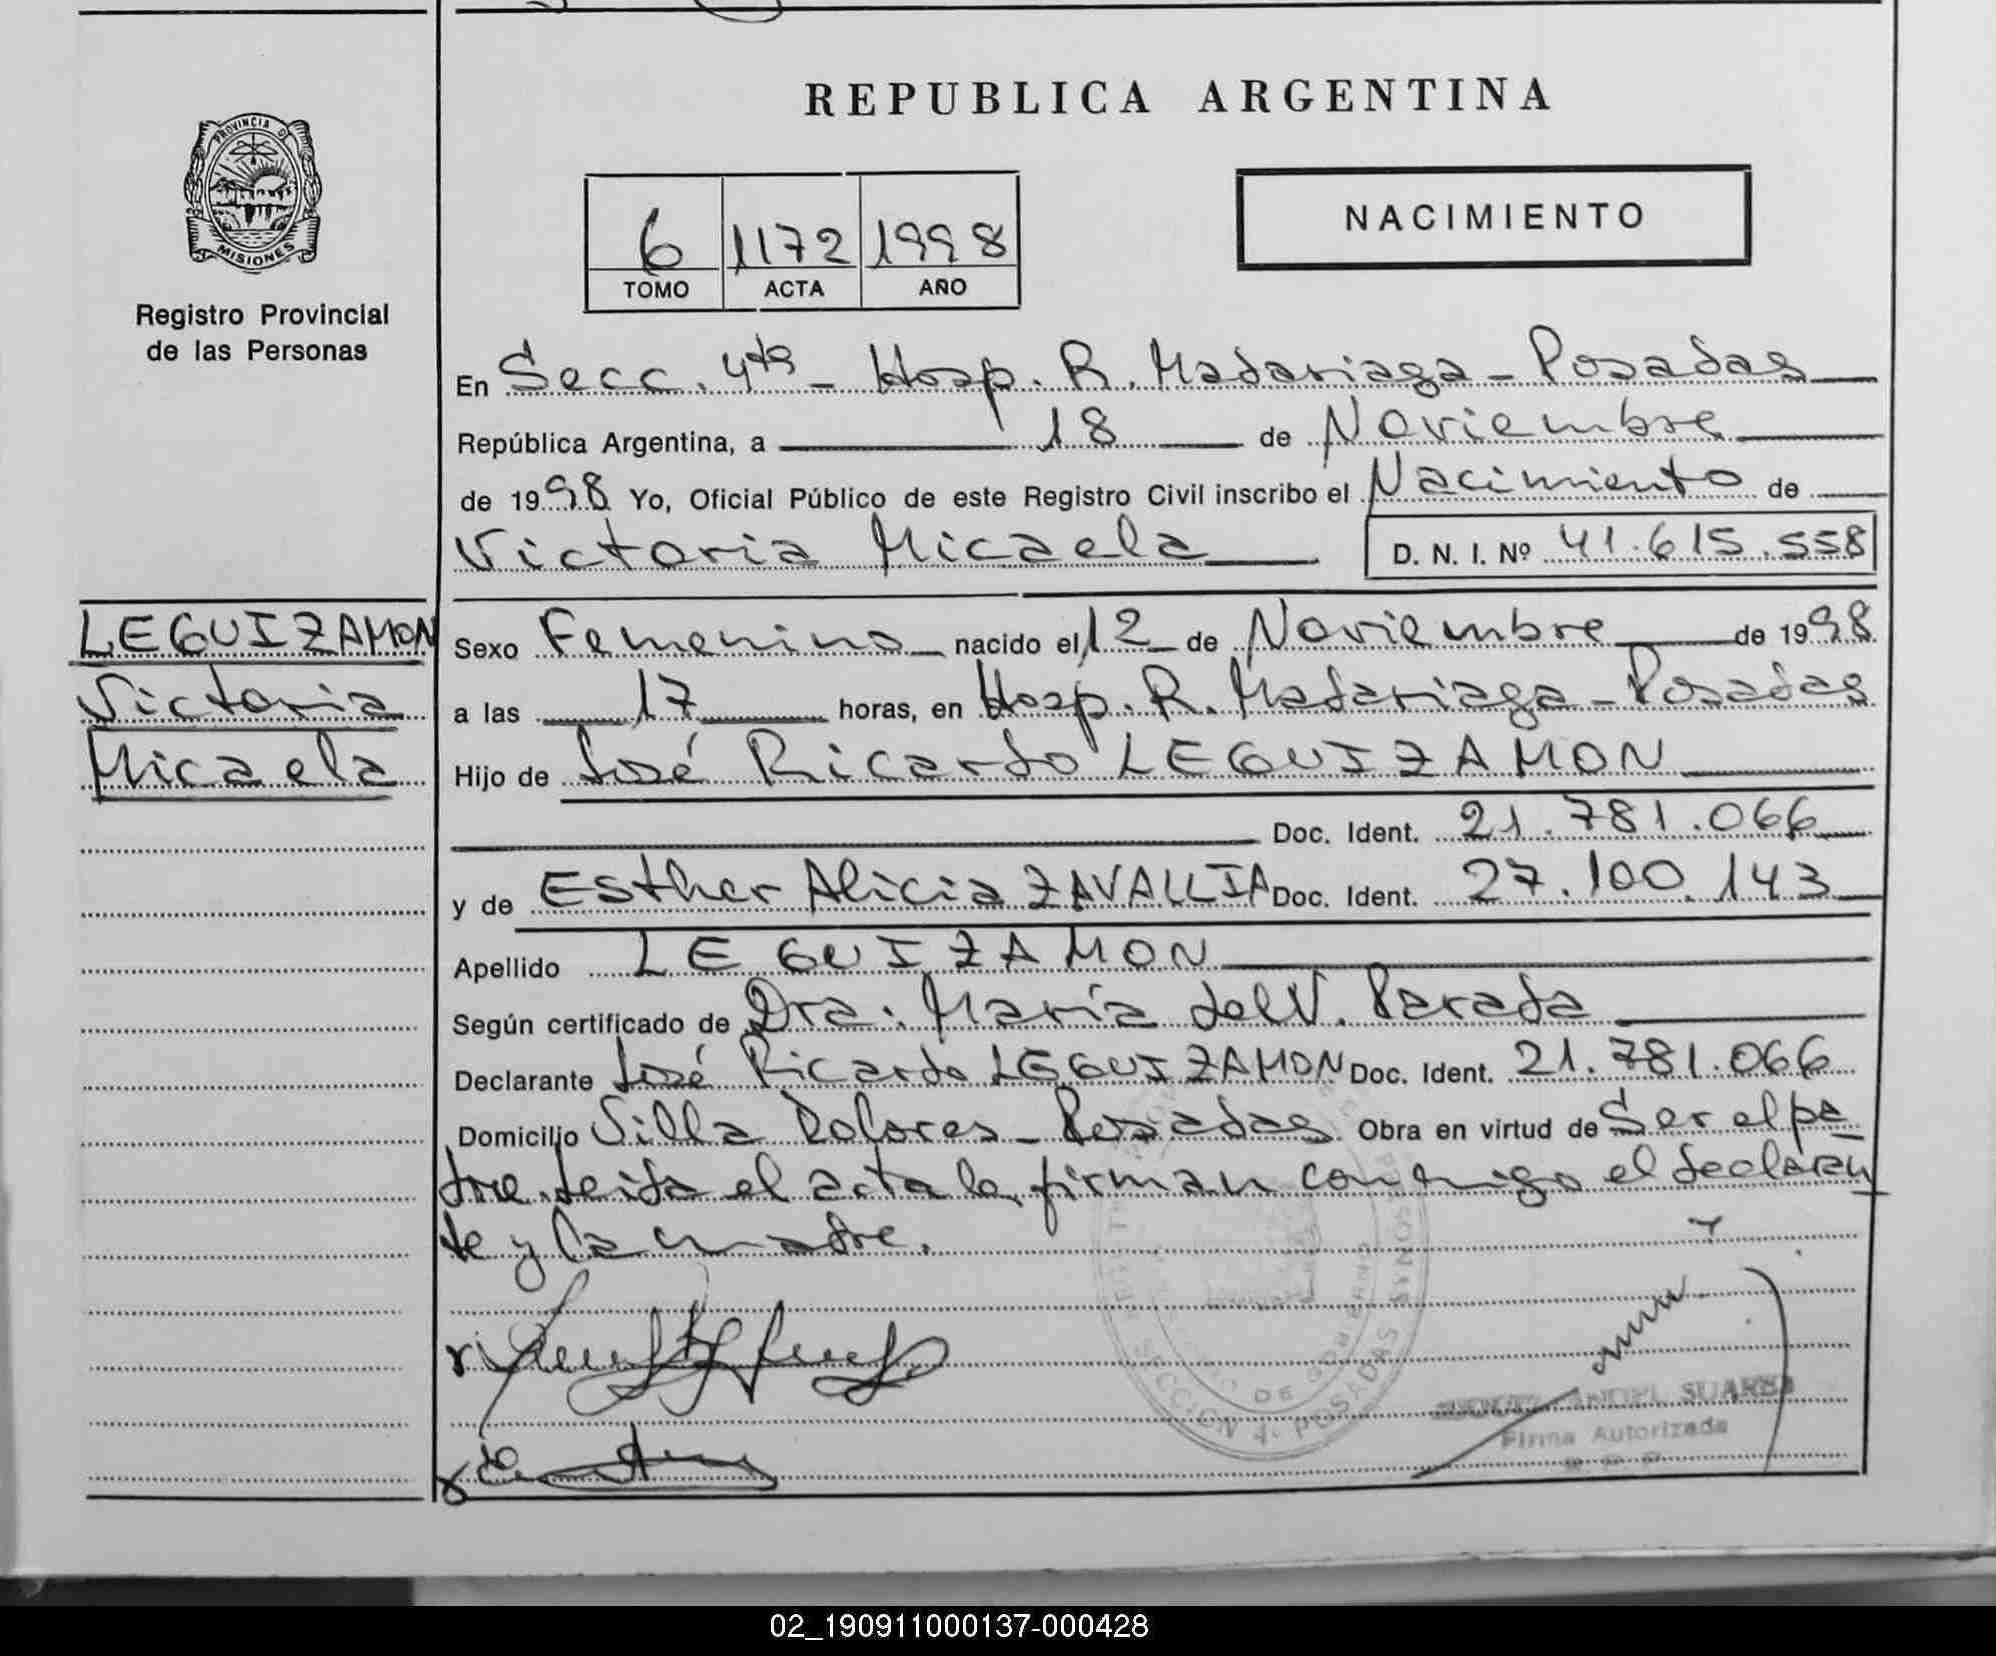 REPUBLICA ARGENTINA
PROVINCIA D
MISIONES
Registro Provincial
de las Personas
6 1172 1998
TOMO ACTA AÑO
NACIMIENTO
En Secc. 4ta - Hosp. R. Madariaga - Posadas
República Argentina, a 18 de Noviembre
de 1998 Yo, Oficial Público de este Registro Civil inscribo el Nacimiento de
Victoria Micaela D. N. I. Nº 41.615.558
LEGUIZAMON
Victoria
Micaela
Sexo Femenino nacido el 12 de Noviembre de 1998
a las 17 horas, en Hosp. R. Madariaga - Posadas
Hijo de José Ricardo LEGUIZAMON
Doc. Ident. 21.781.066
y de Esther Alicia ZAVALLIA Doc. Ident. 27.100.143
Apellido LEGUIZAMON
Según certificado de Dra. María del V. Parada
Declarante José Ricardo LEGUIZAMON Doc. Ident. 21.781.066
Domicilio Villa Dolores - Posadas Obra en virtud de Ser el pa
dre. Leida el acta la firman conmigo el declaran
te y la madre.
SECCION 4 POSADAS
ANGEL SUAREZ
Firma Autorizada
02_190911000137-000428